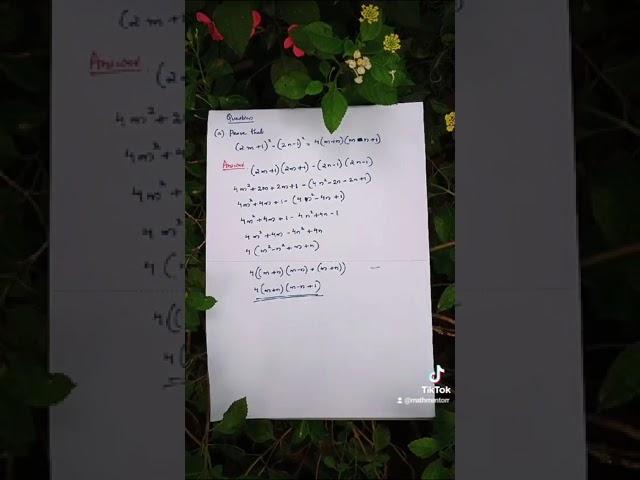 Question
(a) Prove that
(2m+1)² - (2n-1)² = 4(m+n)(m-n+1)
Answer
(2m+1)(2m+1) - (2n-1)(2n-1)
4m²+2m+2m+1 - (4n²-2n-2n+1)
4m²+4m+1 - (4n²-4n+1)
4m²+4m+1 - 4n²+4n-1
4m²+4m - 4n²+4n
4(m²-n²+m+n)
4((m+n)(m-n)+(m+n))
4(m+n)(m-n+1)
TikTok
@mathmentorr